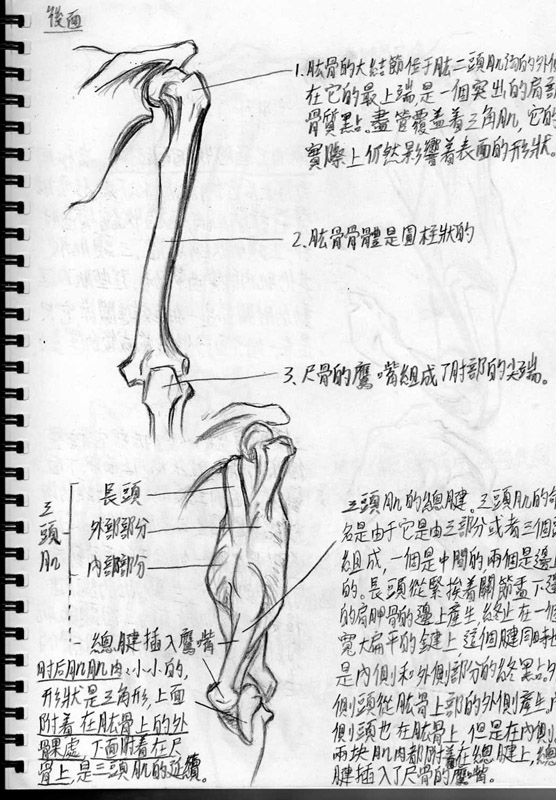 後面
1. 肱骨的大結節位于肱二頭肌溝的外側
在它的最上端,是一個突出的肩部
骨質點。盡管覆盖着三角肌,它的
實際上仍然影響着表面的形狀。
2. 肱骨骨體是圓柱狀的
3. 尺骨的鷹嘴組成了肘部的尖端。
三頭肌
長頭
外部部分
內部部分
總腱插入鷹嘴
肘后肌肌肉:小小的,
形狀是三角形,上面
附着在肱骨上的外
髁處,下面附着在尺
骨上,是三頭肌的延續。
三頭肌的總腱。三頭肌的命
名是由于它是由三部分或者三個
組成,一個是中間的兩個是邊
的。長頭從緊挨着關節盂下
的肩胛骨的邊上產生,終止在一個
寬大扁平的腱上,這個腱同時
是內側和外側部分的終點。外
側頭從肱骨上部的外側產生,內
側頭也在肱骨上,但是在內側。
兩块肌肉都附着在總腱上,總
腱插入了尺骨的鷹嘴。